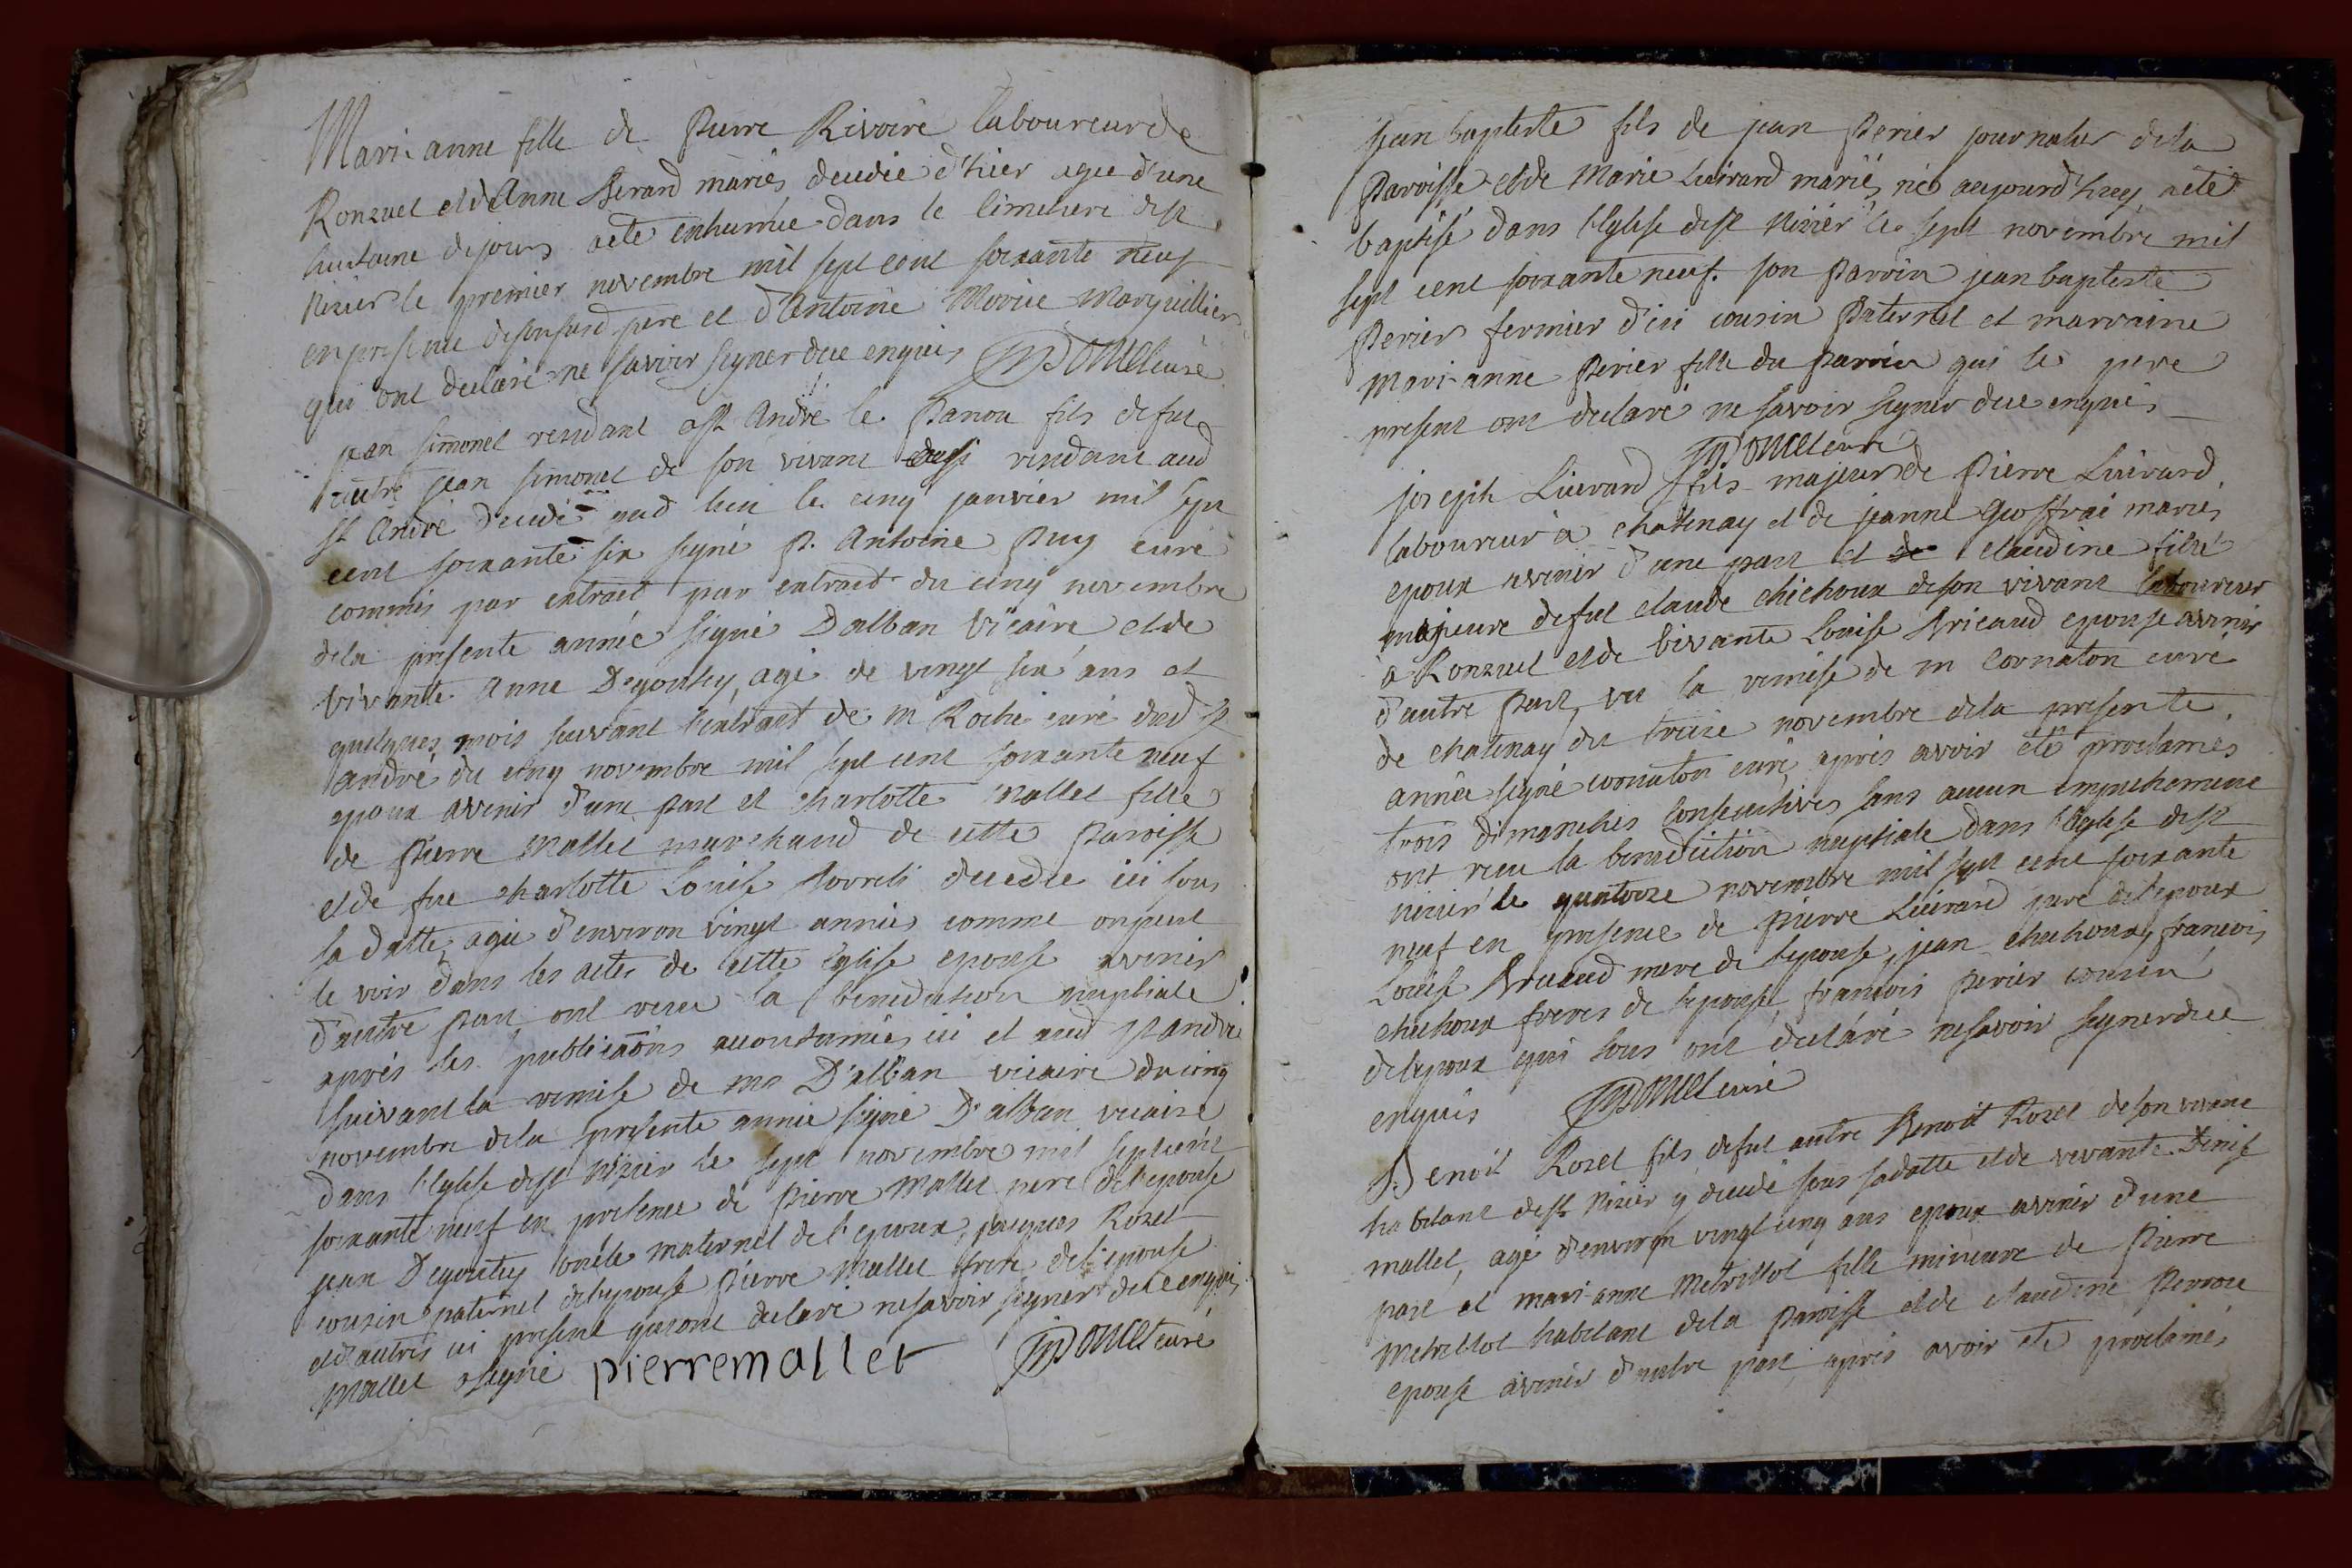 Mari-anne fille de Pierre Rivoire laboureur de
Ronzuel et d'Anne Berard mariés decedée d'hier agée d'une
huitaine de jours a eté enhumée dans le Cimetiere de st
Nizier le premier novembre mil sept cent soixante neuf
en presence de son susd pere et d'Antoine Morice Marguillier
qui ont declaré ne savoir signer de ce enquis curé
jean simonet residant a st André le Panou fils de fut
autre jean simonet de son vivant aussi residant aud
st André decedé aud lieu le cinq janvier mil sept
cent soixante six signé P. Antoine Puy curé
commis par extrait par extrait du cinq novembre
de la presente année signé Dalban vicaire et de
vivante Anne Degoutey, agé de vingt six ans et
quelques mois suivant l'extrait de m Roche curé dud st
andré du cinq novembre mil sept cent soixante neuf
epoux avenir d'une part et charlotte Mallet fille
de Pierre Mallet marchand de cette Paroisse
et de fue charlotte Louise decedée ici sous
sa datte, agée d'environ vingt années comme on peut
le voir dans les actes de cette Eglise epouse avenir
d'autre part, ont recu la benediction nuptiale
après les publicaons accoutumées ici et aud st andré
suivant la remise de mr D'alban vicaire du cinq
novembre de la presente année signé D'alban vicaire
dans l'Eglise de st Nizier le sept novembre mil sept cent
soixante neuf en presence de Pierre Mallet pere de l'epouse
jean Degoutey oncle maternel de l'epoux, jacques Rozet
cousin paternel de l'epouse Pierre Mallet frere de l'epouse
et d'autres ici present qui ont declaré ne savoir signer de ce enquis
Mallet a signé pierremallet curé
jean baptiste fils de jean Perier journalier de la
Paroisse et de Marie Luivrard mariés, né aujourd'huy, a eté
baptisé dans l'Eglise de st Nizier le sept novembre mil
sept cent soixante neuf. son Parvin jean baptiste
Perier fermier d'ici cousin Paternel et marvaine
Mari-anne Perier fille du Parvin qui le pere
present ont declaré ne savoir signer de ce enquis
curé
joseph Luivrard fils majeur de Pierre Luivrard
laboureur à chatenay et de jeanne Geoffrai mariés
epoux avenir d'une part et de claudine fille
majeure de fut claude chichoux de son vivant laboureur
a Ronzuel et de vivante Louise Bricaud epouse avenir
d'autre part, vu la remise de m Cornaton curé
de chatenay du treize novembre de la presente
année signé cornaton curé, après avoir été proclamés
trois dimanches consecutives sans aucun empechement
ont recu la benediction nuptiale dans l'Eglise de st
nizier le quatorze novembre mil sept cent soixante
neuf en presence de Pierre Luivrard pere de l'epoux
Louise Bricaud mere de l'epouse, jean chichoux, francois
chichoux freres de l'epouse, francois Perier cousin
de l'epoux qui tous ont declaré ne savoir signer de ce
enquis curé
Benoit Rozet fils de fut autre Benoit Rozet de son vivant
habitant de st Nizier y decedé sous sa datte et de vivante Denise
mallet, agé d'environ vingt cinq ans epoux avenir d'une
part et mari-anne Metrillot fille mineure de Pierre
Metrillot habitant de la Paroisse et de claudine
epouse avenir d'autre part, après avoir eté proclamés